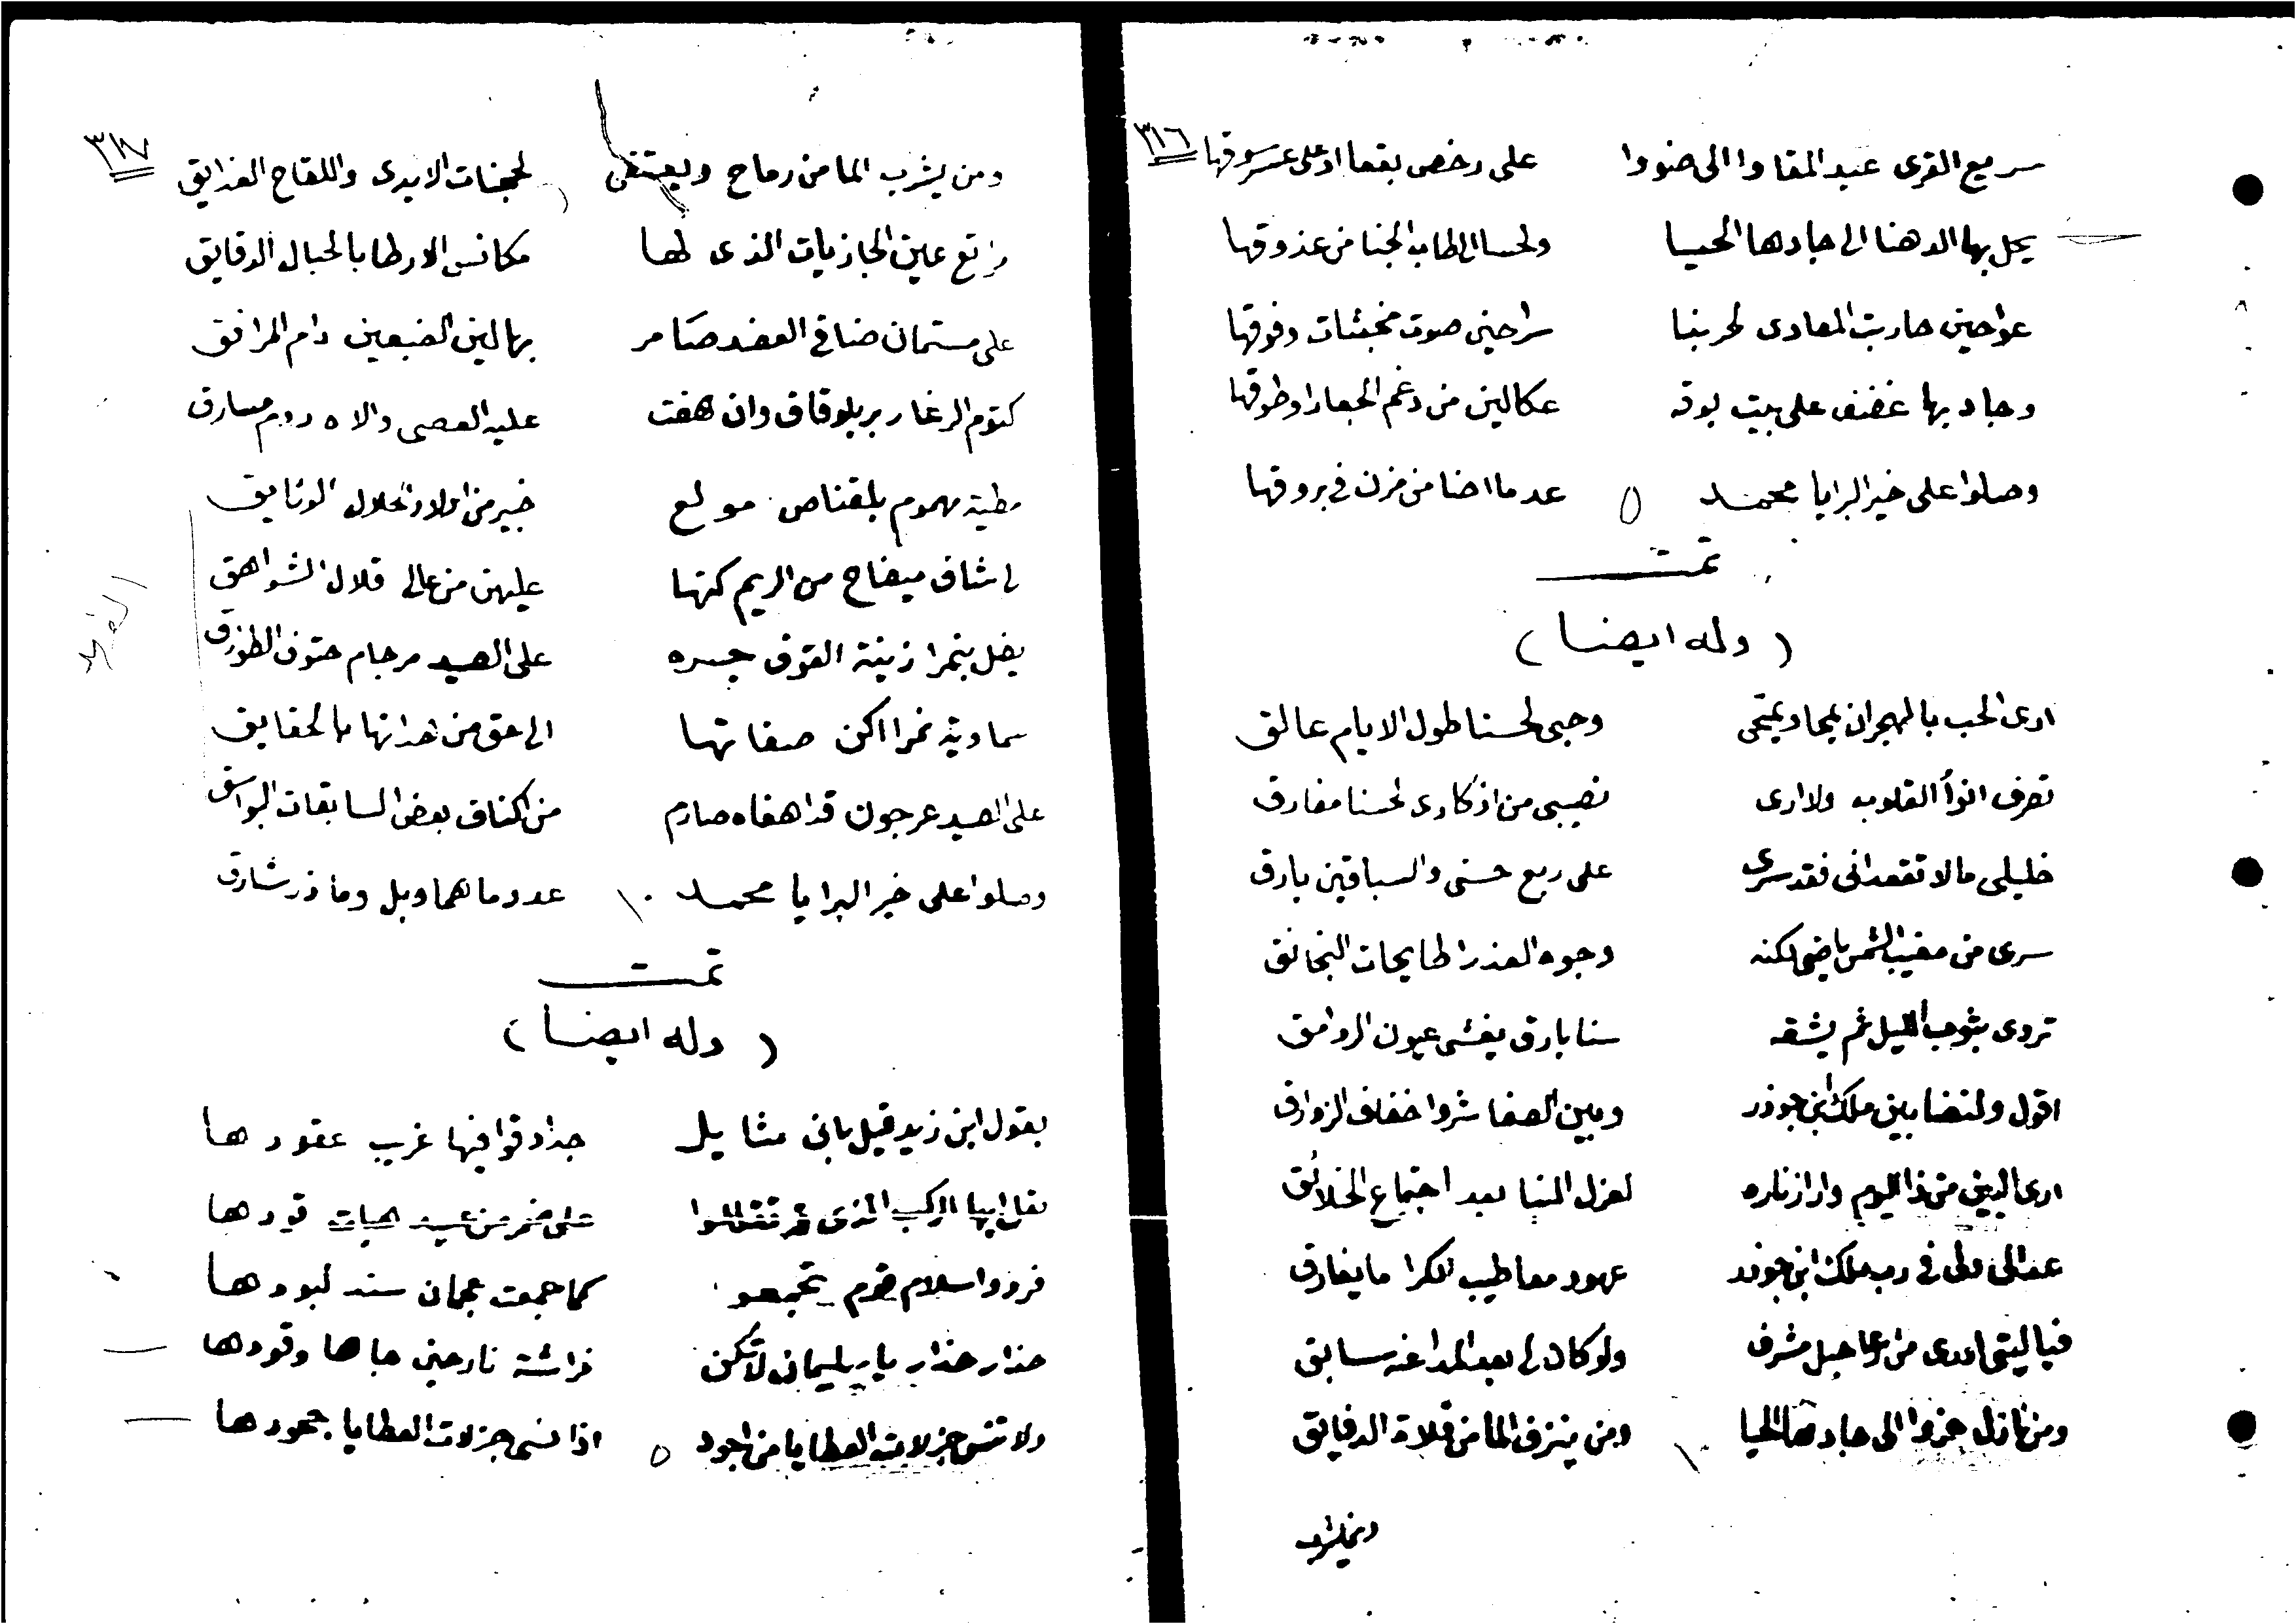 ٣١٦
سريع القرى عبد المقاوا الى ضنودا على رخص بقعا او على عسر سوقها
يحل بها الدهنا الى جادها الحيا ولحسا الى طاب الجنا من عذوقها
عواجين حاربت المعادى لحربنا سراحين صوت مخبثات وفوقها
وجاد بها غضنف على بيت بوقه عكالين من دغم الجعارا وطوقها
وصلوا على خير البرايا محمد ٥ عد ما اضا من مزن في بروقها
تمت
( وله ايضا )
ارى الحب بالهجران يمحا ويمتحى وحبى لحسنا طول الايام عالق
تصرف انوأ القلوب ولا ارى نصيبى من اذكارى لحسنا مفارق
خليلى مالا تقعدانى فقد سرى على ربع حسنى والسباقين بارق
سرى من مغيب الشمس ياضى لكنه وجوه العذرا طايحات البخانق
تروى بثوب الليل ثم يشقه سنا بارق يغشى عيون الروامق
اقول ولنضا بين ملك ابن جوذر وبين الصفا شروا خفاف الزوارق
ارى البين من ذا اليوم وارا زناره لعزل المنيا بعد اجتماع الخلائق
عدالى ولى في رب ملك ابن جوذر عهود معا طيب لكرا ما يفارق
فيا ليتى اورى من وعا جبل مشرف ولو كان لى بعد المداغنه سابق
ومن نازل حزوا الى جادها الحيا ١٠ ومن ينزف الما من قلاة الدقايق
ومن يشرب
٣١٧
ومن يشرب الما من رماح ويعتنى لمجنات الايدى واللقاح الغدايق
مراتع عين الجازيات الذى لها مكانس الارطا بالحبال الدقايق
على مستمان ضافي العضد ضامر بها لين الضبعين دام المرافق
كتوم الرغا ربر بلوقاف وان هفت عليه العصى والاه دوم مسارق
مطية مهموم بلقناص مولع خبير من اولاد الحلال الوثايق
لى شاف ميفاح من الريم كنها عليهن من عالى قلال الشواهق
يضل بنمرا زينة القوق جسره على الصيد مرجام حتوف الطوارق
سماوية نمرا اكن صفاتها الى حق من اهدانها بالحقايق
على الصيد عرجون قد اهفاه صارم من اكناف بعض السابقات البواسق
وصلوا على خير البرايا محمد ١٠ عدد ما هما وبل وما ذر شارق
تمت
( وله ايضا )
يقول ابن زيد قيل بانى مثايل جداد قوافيها غريب عقودها
يقل ايها الركب الذى قد تقللوا على ضمر من عيد هيات قودها
فردوا سلام قوم تجمعو كما جمعت عجمان سند لبودها
حذار حذار يا بليمان لا تكن فراشة نار حين جاها وقودها
ولا تنس جزلات العطايا من اجود ٥ اذا نسى جزلات العطايا جحودها